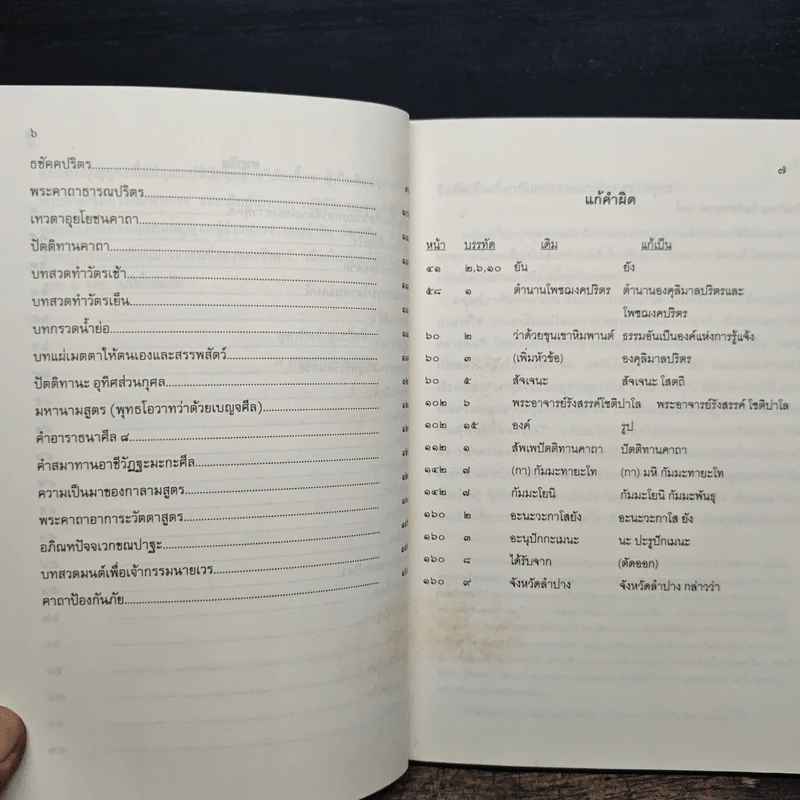 ๖
ธชัคคปริตร
พระคาถาธารณปริตร
เทวตาอุยโยชนคาถา
ปัตติทานคาถา
บทสวดทำวัตรเช้า
บทสวดทำวัตรเย็น
บทกรวดน้ำย่อ
บทแผ่เมตตาให้ตนเองและสรรพสัตว์
ปัตติทานะ อุทิศส่วนกุศล
มหานามสูตร (พุทธโอวาทว่าด้วยเบญจศีล)
คำอาราธนาศีล ๘
คำสมาทานอาชีวัฏฐะมะกะศีล
ความเป็นมาของกาลามสูตร
พระคาถาอาการะวัตตาสูตร
อภิณหปัจจเวกขณปาฐะ
บทสวดมนต์เพื่อเจ้ากรรมนายเวร
คาถาป้องกันภัย
๗
แก้คำผิด
หน้า บรรทัด เดิม แก้เป็น
๔๑ ๒,๖,๑๐ ยัน ยัง
๕๘ ๑ ตำนานโพชฌงคปริตร ตำนานองคุลิมาลปริตรและ
โพชฌงคปริตร
๖๐ ๒ ว่าด้วยขุนเขาหิมพานต์ ธรรมอันเป็นองค์แห่งการรู้แจ้ง
๖๐ ๓ (เพิ่มหัวข้อ) องคุลิมาลปริตร
๖๐ ๕ สัจเจนะ สัจเจนะ โสตถิ
๑๐๒ ๖ พระอาจารย์รังสรรค์โชติปาโล พระอาจารย์รังสรรค์ โชติปาโล
๑๐๒ ๑๕ องค์ รูป
๑๑๒ ๑ สัพเพปัตติทานคาถา ปัตติทานคาถา
๑๔๒ ๗ (กา) กัมมะทายะโท (กา) มหิ กัมมะทายะโท
๑๔๒ ๗ กัมมะโยนิ กัมมะโยนิ กัมมะพันธุ
๑๖๐ ๒ อะนะวะกาโสยัง อะนะวะกาโส ยัง
๑๖๐ ๓ อะนุปักกะเมนะ นะ ปะรูปักเมนะ
๑๖๐ ๘ ได้รับจาก (ตัดออก)
๑๖๐ ๙ จังหวัดลำปาง จังหวัดลำปาง กล่าวว่า